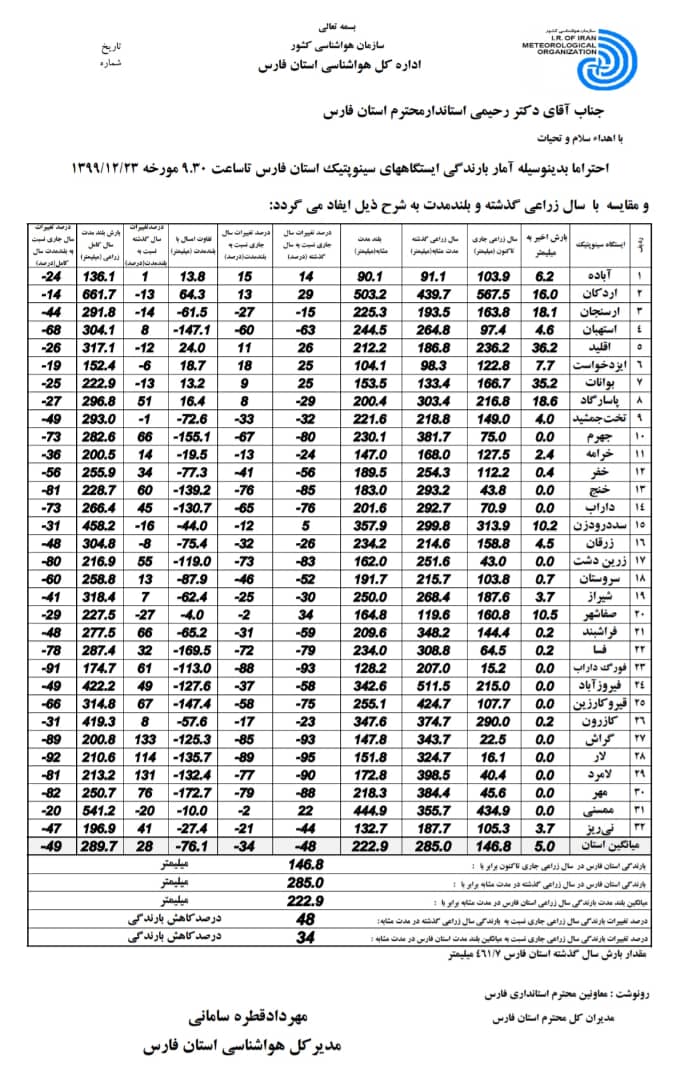 بسمه تعالی
سازمان هواشناسی کشور
اداره کل هواشناسی استان فارس
تاریخ
شماره
سازمان هواشناسی کشور
I.R. OF IRAN
METEOROLOGICAL
ORGANIZATION
جناب آقای دکتر رحیمی استاندارمحترم استان فارس
با اهداء سلام و تحیات
احتراما بدینوسیله آمار بارندگی ایستگاههای سینوپتیک استان فارس تاساعت ۹.۳۰ مورخه ۱۳۹۹/۱۲/۲۳
و مقایسه با سال زراعی گذشته و بلندمدت به شرح ذیل ایفاد می گردد:
ردیف | ایستگاه سینوپتیک | بارش اخیر به میلیمتر | سال زراعی جاری تاکنون (میلیمتر) | سال زراعی گذشته مدت مشابه(میلیمتر) | بلند مدت مشابه(میلیمتر) | درصد تغییرات سال جاری نسبت به سال گذشته (درصد) | درصد تغییرات سال جاری نسبت به بلندمدت(درصد) | تفاوت امسال با بلندمدت (میلیمتر) | درصدتغییرات سال گذشته نسبت به بلندمدت(درصد) | بارش بلند مدت سال کامل زراعی (میلیمتر) | درصد تغییرات سال جاری نسبت به بلندمدت سال کامل(درصد)
۱ آباده 6.2 103.9 91.1 90.1 14 15 13.8 1 136.1 -24
۲ اردکان 16.0 567.5 439.7 503.2 29 13 64.3 -13 661.7 -14
۳ ارسنجان 18.1 163.8 193.5 225.3 -15 -27 -61.5 -14 291.8 -44
۴ استهبان 4.6 97.4 264.8 244.5 -63 -60 -147.1 8 304.1 -68
۵ اقلید 36.2 236.2 186.8 212.2 26 11 24.0 -12 317.1 -26
۶ ایزدخواست 7.7 122.8 98.3 104.1 25 18 18.7 -6 152.4 -19
۷ بوانات 35.2 166.7 133.4 153.5 25 9 13.2 -13 222.9 -25
۸ پاسارگاد 18.6 216.8 303.4 200.4 -29 8 16.4 51 296.8 -27
۹ تخت‌جمشید 4.0 149.0 218.8 221.6 -32 -33 -72.6 -1 293.0 -49
۱۰ جهرم 0.0 75.0 381.7 230.1 -80 -67 -155.1 66 282.6 -73
۱۱ خرامه 2.4 127.5 168.0 147.0 -24 -13 -19.5 14 200.5 -36
۱۲ خفر 0.4 112.2 254.3 189.5 -56 -41 -77.3 34 255.9 -56
۱۳ خنج 0.0 43.8 293.2 183.0 -85 -76 -139.2 60 228.7 -81
۱۴ داراب 0.0 70.9 292.7 201.6 -76 -65 -130.7 45 266.4 -73
۱۵ سددرودزن 10.2 313.9 299.8 357.9 5 -12 -44.0 -16 458.2 -31
۱۶ زرقان 4.5 158.8 214.6 234.2 -26 -32 -75.4 -8 304.8 -48
۱۷ زرین دشت 0.0 43.0 251.6 162.0 -83 -73 -119.0 55 216.9 -80
۱۸ سروستان 0.7 103.8 215.7 191.7 -52 -46 -87.9 13 258.8 -60
۱۹ شیراز 3.7 187.6 268.4 250.0 -30 -25 -62.4 7 318.4 -41
۲۰ صفاشهر 10.5 160.8 119.6 164.8 34 -2 -4.0 -27 227.5 -29
۲۱ فراشبند 0.2 144.4 348.2 209.6 -59 -31 -65.2 66 277.5 -48
۲۲ فسا 0.2 64.5 308.8 234.0 -79 -72 -169.5 32 287.4 -78
۲۳ فورگ داراب 0.0 15.2 207.0 128.2 -93 -88 -113.0 61 174.7 -91
۲۴ فیروزآباد 0.0 215.0 511.5 342.6 -58 -37 -127.6 49 422.2 -49
۲۵ قیروکارزین 0.0 107.7 424.7 255.1 -75 -58 -147.4 67 314.8 -66
۲۶ کازرون 0.2 290.0 374.7 347.6 -23 -17 -57.6 8 419.3 -31
۲۷ گراش 0.0 22.5 343.7 147.8 -93 -85 -125.3 133 200.8 -89
۲۸ لار 0.0 16.1 324.7 151.8 -95 -89 -135.7 114 210.6 -92
۲۹ لامرد 0.0 40.4 398.5 172.8 -90 -77 -132.4 131 213.2 -81
۳۰ مهر 0.0 45.6 384.4 218.3 -88 -79 -172.7 76 250.7 -82
۳۱ ممسنی 0.0 434.9 355.7 444.9 22 -2 -10.0 -20 541.2 -20
۳۲ نی‌ریز 3.7 105.3 187.7 132.7 -44 -21 -27.4 41 196.9 -47
میانگین استان 5.0 146.8 285.0 222.9 -48 -34 -76.1 28 289.7 -49
بارندگی استان فارس در سال زراعی جاری تاکنون برابر با : 146.8 میلیمتر
بارندگی استان فارس در سال زراعی گذشته در مدت مشابه برابر با : 285.0 میلیمتر
میانگین بلند مدت بارندگی سال زراعی استان فارس در مدت مشابه برابر با : 222.9 میلیمتر
درصد تغییرات بارندگی سال زراعی جاری نسبت به بارندگی سال زراعی گذشته در مدت مشابه: 48 درصدکاهش بارندگی
درصد تغییرات بارندگی سال زراعی جاری نسبت به میانگین بلند مدت استان فارس در مدت مشابه : 34 درصدکاهش بارندگی
مقدار بارش سال گذشته استان فارس ۴۶۱/۷ میلیمتر
رونوشت : معاونین محترم استانداری فارس
مدیران کل محترم استان فارس
مهردادقطره سامانی
مدیرکل هواشناسی استان فارس